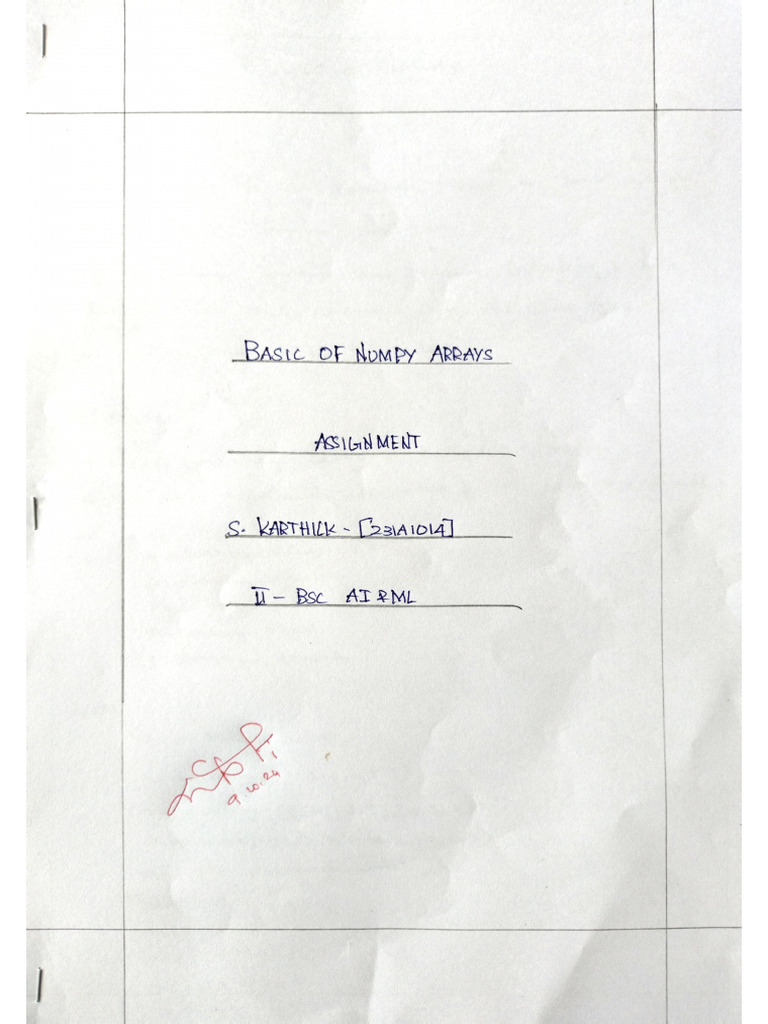 BASIC OF NUMPY ARRAYS
ASSIGNMENT
S. KARTHICK - [23IA1014]
II - BSC AI & ML
9.10.24